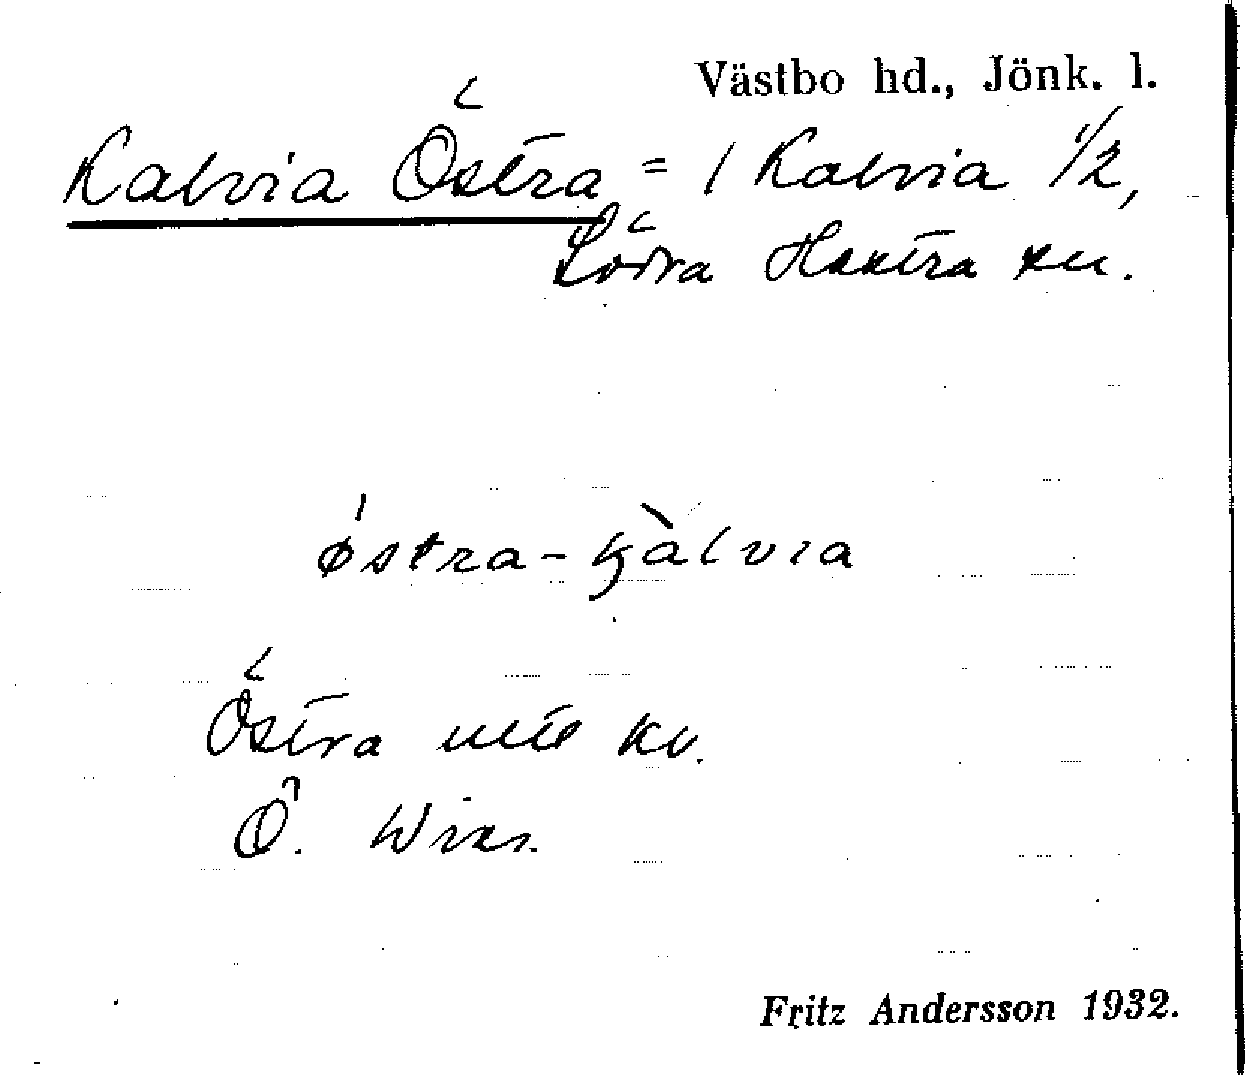 Västbo hd., Jönk. l.
Kalvia Östra = 1 Kalvia 1/2,
Södra Hestra sn.
östra-kàlvia
Östra utt kv.
Ö.
Fritz Andersson 1932.